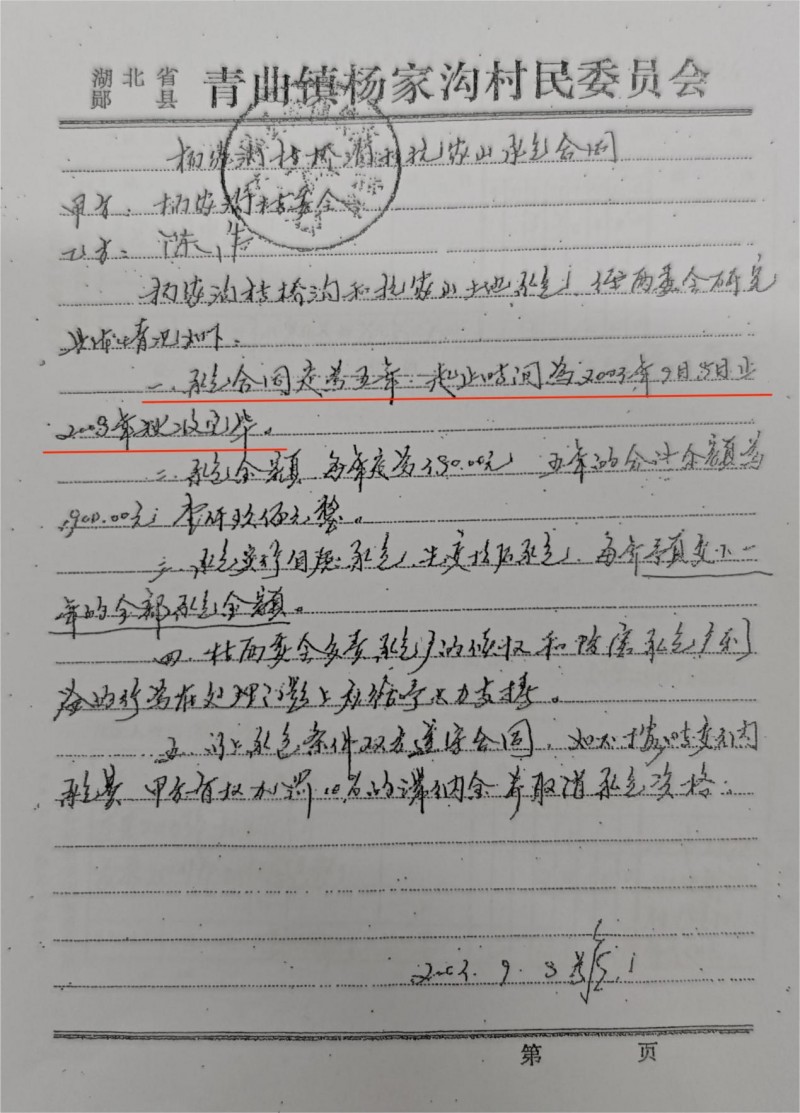 湖北省郧县 青曲镇杨家沟村民委员会
杨家沟村桥沟和 家山承包合同
甲方：杨家沟村委会
乙方：陈
杨家沟村桥沟和 家山土地承包，经两委会研究
具体情况如下：
一、承包合同定为五年，起止时间为2003年9月5日止
200 年秋收完毕。
二、承包金额 每年度为190.00元 五年的合计金额为
900.00元； 仟玖佰元整。
三、承包实行 承包，先交款后承包，每年 交下一
年的全部承包金额。
四、村两委会负责承包户的 收和 害承包户利
益的行为在处理问题上应给予大力支持。
五、以上承包条件双方遵守合同，如不按时交纳
承包 甲方有权加罚10%的滞纳金并取消承包资格。
200 . 9. 3
第 页